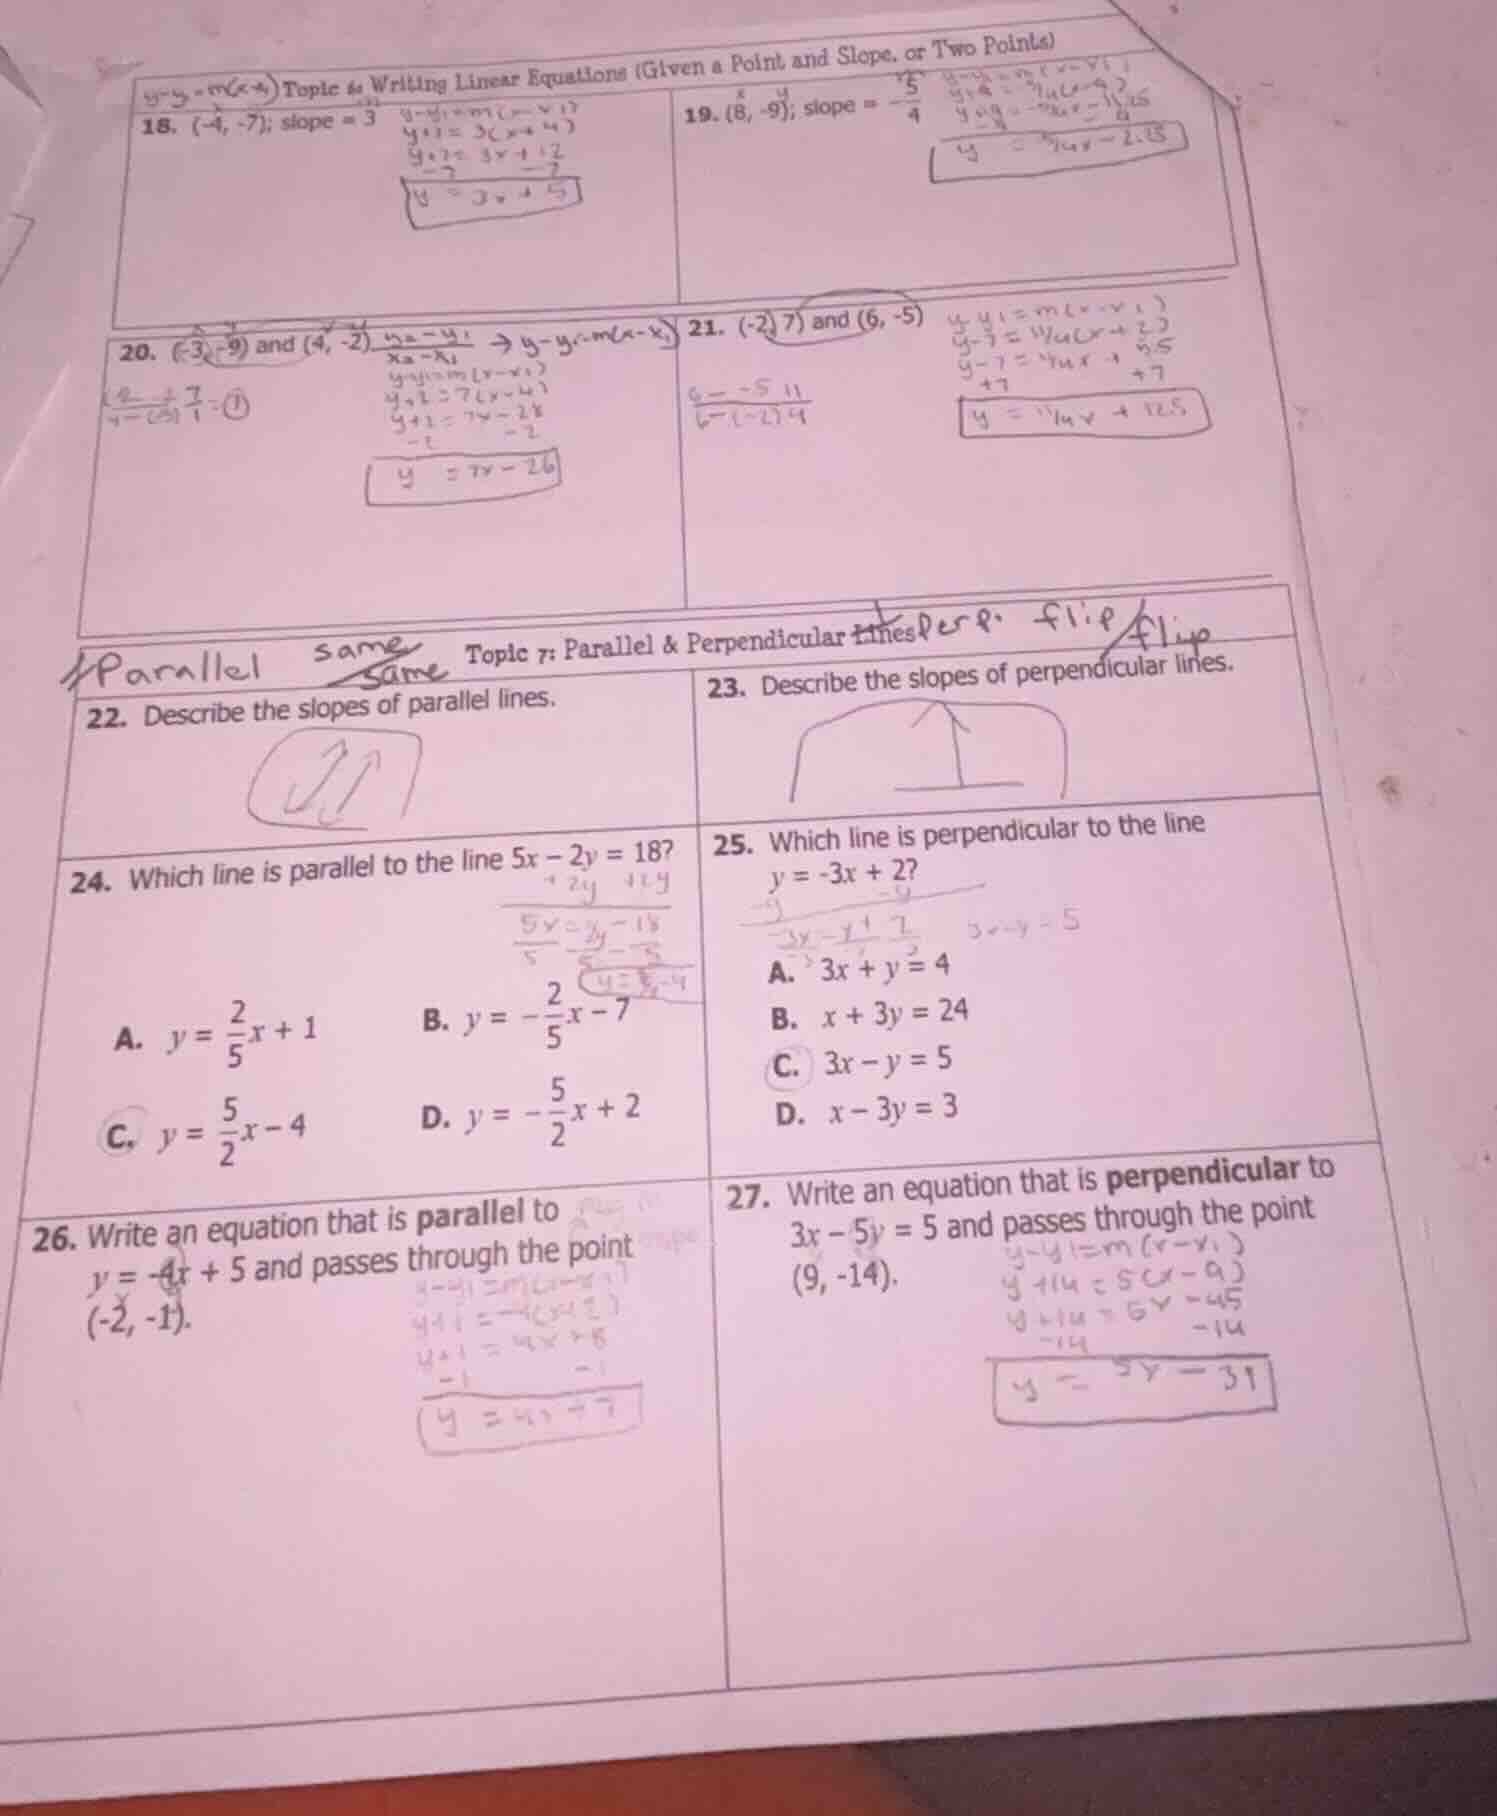 y-y₁=m(x-x₁) Topic 6: Writing Linear Equations (Given a Point and Slope, or Two Points)
18. (-4, -7); slope = 3
y-y₁=m(x-x₁)
y+7= 3(x+4)
y+7= 3x+12
-7 -7
y = 3x + 5
19. (8, -9); slope = -5/4
y-y₁=m(x-x₁)
y = 5/4x-2.25
20. (-3, -9) and (4, -2) y₂-y₁/x₂-x₁ → y-y₁=m(x-x₁)
7/1
y-y₁=m(x-x₁)
y+2=7(x-4)
y+2=7x-28
-2 -2
y = 7x-26
21. (-2, 7) and (6, -5)
6--5 11
6-(-2) 4
y-y₁=m(x-x₁)
y-7=11/4(x+2)
y-7=11/4x + 5.5
+7 +7
y = 11/4x + 12.5
Parallel same/same Topic 7: Parallel & Perpendicular Lines Perp. flip/flip
22. Describe the slopes of parallel lines.
23. Describe the slopes of perpendicular lines.
24. Which line is parallel to the line 5x – 2y = 18?
+2y +2y
A. y = 2/5x + 1
B. y = -2/5x – 7
C. y = 5/2x – 4
D. y = -5/2x + 2
25. Which line is perpendicular to the line
y = -3x + 2?
-y -y
3x-y=5
A. 3x + y = 4
B. x + 3y = 24
C. 3x – y = 5
D. x – 3y = 3
26. Write an equation that is parallel to
y = -4x + 5 and passes through the point
(-2, -1).
y-y₁=m(x-x₁)
y+1=-4(x+2)
y+1 = 4x+8
-1 -1
y = 4x+7
27. Write an equation that is perpendicular to
3x – 5y = 5 and passes through the point
(9, -14).
y-y₁=m(x-x₁)
y+14=5(x-9)
y+14=5x-45
-14 -14
y = 5x-31